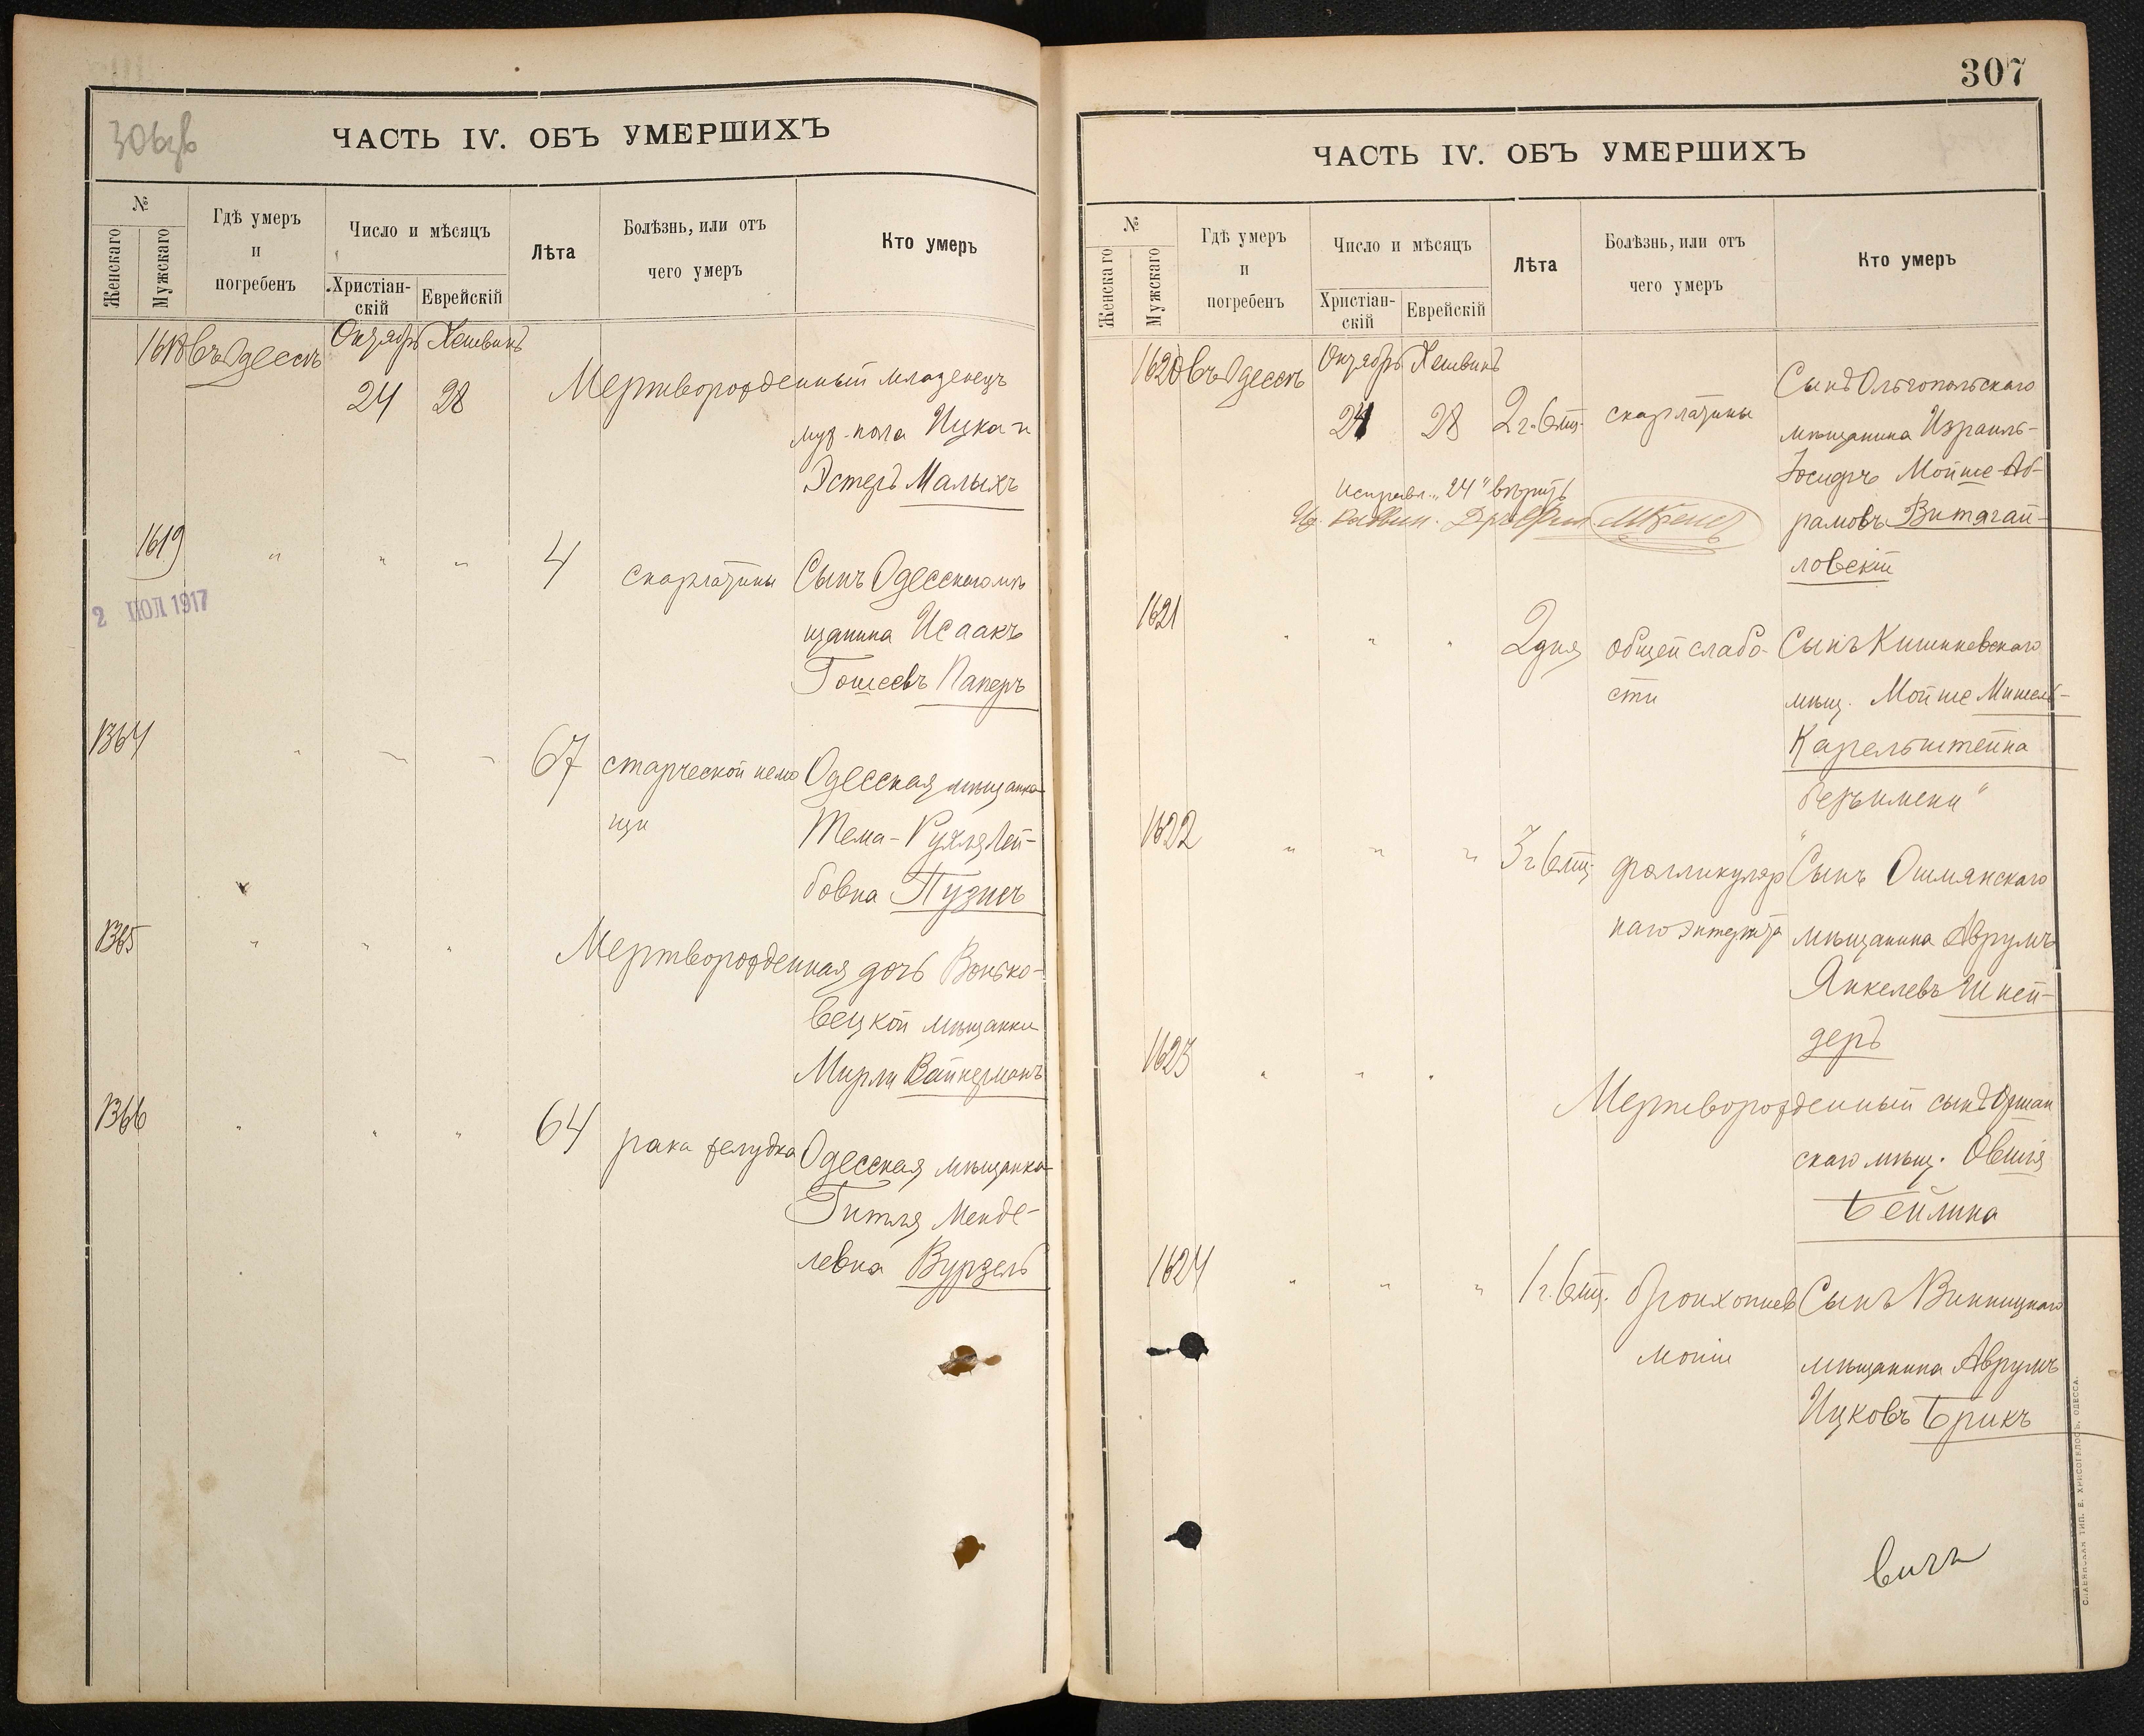 306зв
ЧАСТЬ IV. ОБЪ УМЕРШИХЪ
№
Женскаго
Мужскаго
Гдѣ умеръ
и
погребенъ
Число и мѣсяцъ
Христіан-
скій
Еврейскій
Лѣта
Болѣзнь, или отъ
чего умеръ
Кто умеръ
1618 въ Одессѣ Октябрь Хешвинъ
24 28 Мертворожденный младенецъ
муж. пола Ицка и
Эстеръ Малыхъ
1619 " " " 4 скарлатины Сынъ Одесскаго мѣ
щанина Исаакъ
Гошеевъ Паперъ
2 ИЮЛ 1917
1364 " " " 67 старческой немо Одесская мѣщанка
щи Тема-Рухля Лей-
бовна Пузисъ
1365 " " " Мертворожденная дочь Вонько-
вецкой мѣщанки
Мирли Вайнерманъ
1366 " " " 64 рака желудка Одесская мѣщанка
Гитля Менде-
левна Вурзель
307
ЧАСТЬ IV. ОБЪ УМЕРШИХЪ
№
Женскаго
Мужскаго
Гдѣ умеръ
и
погребенъ
Число и мѣсяцъ
Христіан-
скій
Еврейскій
Лѣта
Болѣзнь, или отъ
чего умеръ
Кто умеръ
1620 въ Одессѣ Октябрь Хешвинъ Сынъ Ольгопольскаго
24 28 2 г. 6 мц. скарлатины мѣщанина Израиль-
Іосифъ Мойше-Аб-
Исправл. "24" вѣрить
рамовъ Витягай-
ловскій
1621 " " " 2 дня общей слабо- Сынъ Кишиневскаго
сти мѣщ. Мойше Мишель-
Карельштейна
"безъ имени"
1622 " " " 3 г. 6 мц. фолликуляр Сынъ Ошмянскаго
наго энтерита мѣщанина Аврумъ
Янкелевъ Шней-
деръ
1623 " " " Мертворожденный сынъ Оршан
скаго мѣщ. Овшія
Бейлина
1624 " " " 1 г. 6 мц. бронхопнев Сынъ Винницкаго
моніи мѣщанина Аврумъ
Ицковъ Брикъ
СЛАВЯНСКАЯ ТИП. Е. ХРИСОГЕЛОСЪ, ОДЕССА.